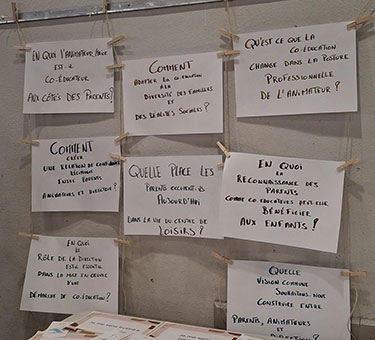 EN QUOI L'ANIMATEUR/TRICE
EST-IL
CO-ÉDUCATEUR
AUX CÔTÉS DES PARENTS?
COMMENT
ADAPTER LA CO-ÉDUCATION
À LA
DIVERSITÉ DES FAMILLES
ET
DES RÉALITÉS SOCIALES?
QU'EST CE QUE LA
CO-ÉDUCATION
CHANGE DANS LA POSTURE
PROFESSIONNELLE
DE L'ANIMATEUR?
COMMENT
CRÉER
UNE RELATION DE CONFIANCE
RÉCIPROQUE
ENTRE PARENTS
ANIMATEURS ET DIRECTION?
QUELLE PLACE LES
PARENTS OCCUPENT-ILS
AUJOURD'HUI
DANS LA VIE DU CENTRE DE
LOISIRS?
EN QUOI
LA
RECONNAISSANCE DES
PARENTS
COMME CO-ÉDUCATEURS PEUT-ELLE
BÉNÉFICIER
AUX ENFANTS?
EN QUOI
LE
RÔLE DE LA DIRECTION
EST-IL ESSENTIEL
DANS LA MISE EN OEUVRE
D'UNE
DÉMARCHE DE CO-ÉDUCATION?
QUELLE
VISION COMMUNE
SOUHAITONS-NOUS
CONSTRUIRE ENTRE
PARENTS, ANIMATEURS
ET
DIRECTION?